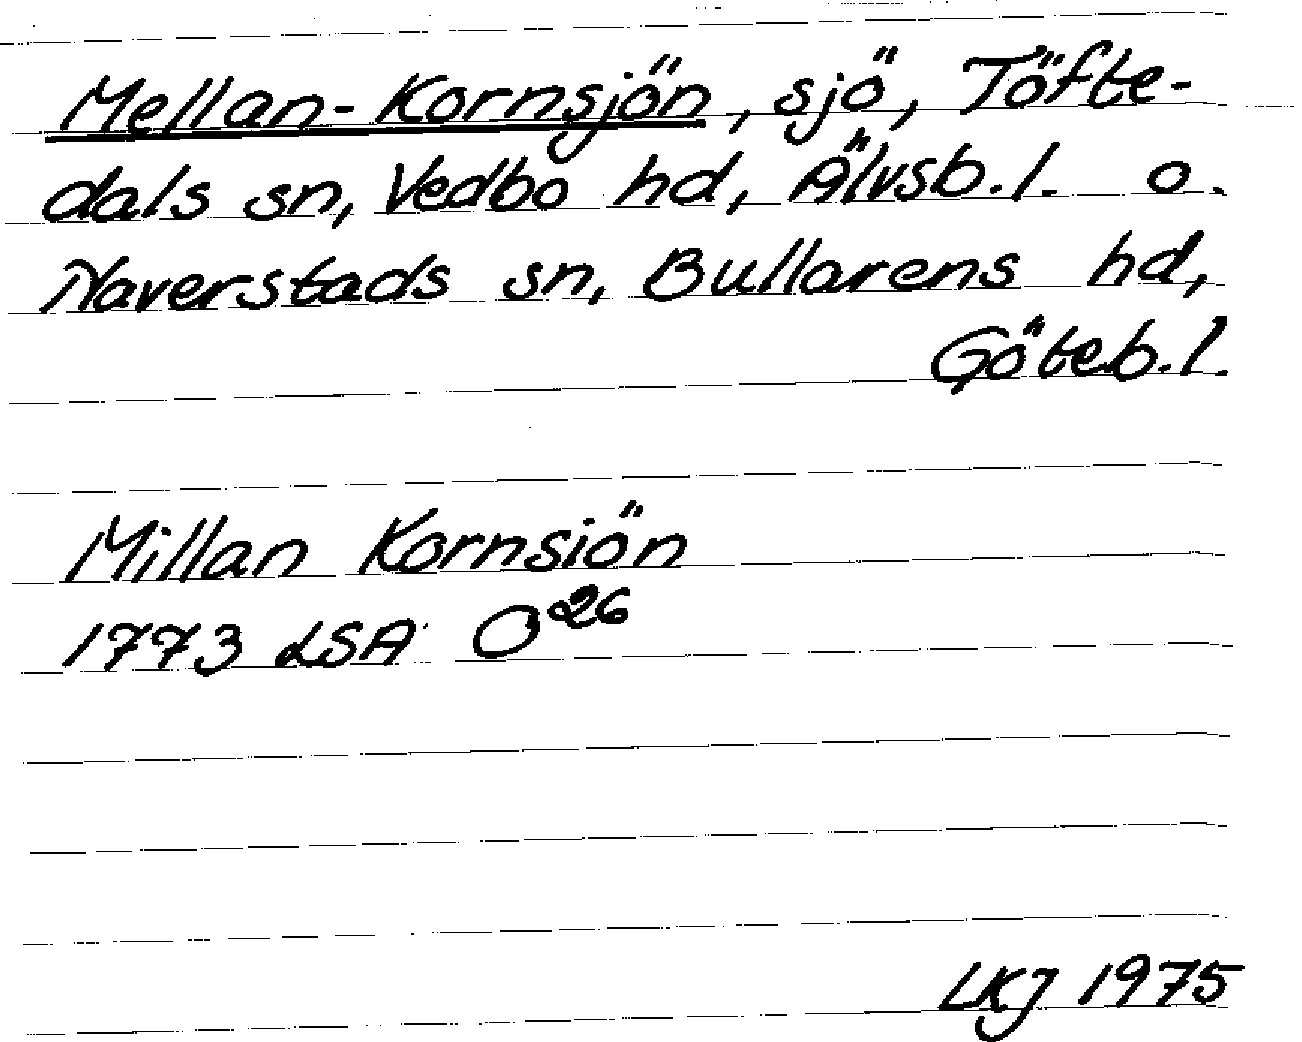 Mellan-Kornsjön, sjö, Töfte-
dals sn, Vedbo hd, Älvsb.l. o.
Naverstads sn, Bullarens hd,
Göteb.l.
Millan Kornsiön
1773 LSA O26
LKJ 1975